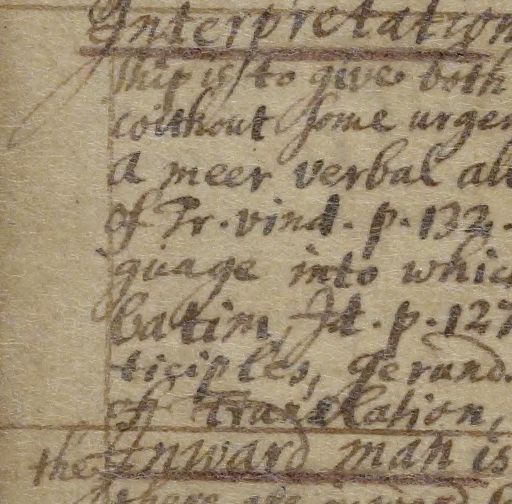 Interpretation
ship is to give both
without some urgen
A meer verbal all
of Tr. vind. p. 132.
guage into whic
batim, It. p. 127
ticiples, gerund.
of Translation,
the inward man is